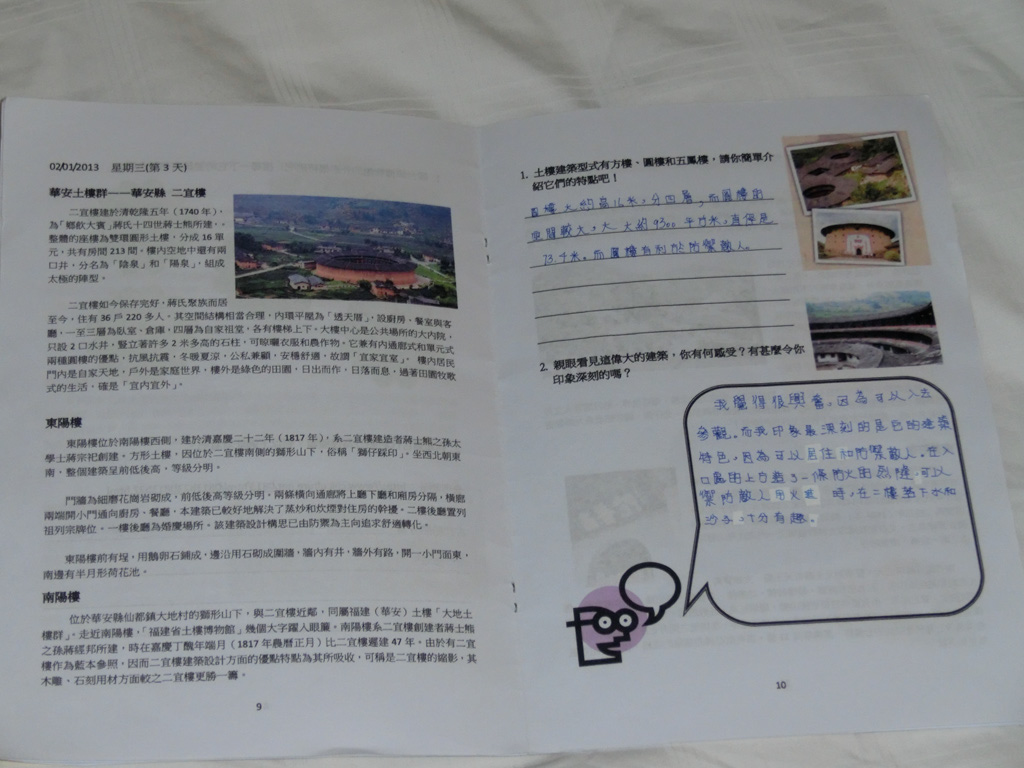 02/01/2013 星期三(第 3 天)
華安土樓群——華安縣 二宜樓
二宜樓建於清乾隆五年（1740 年），
為「鄉飲大賓」蔣氏十四世蔣士熊所建。
整體的座樓為雙環圓形土樓，分成 16 單
元，共有房間 213 間。樓內空地中還有兩
口井，分名為「陰泉」和「陽泉」，組成
太極的陣型。
二宜樓如今保存完好，蔣氏聚族而居
至今，住有 36 戶 220 多人。其空間結構相當合理，內環平屋為「透天厝」，設廚房、餐室與客
廳，一至三層為臥室、倉庫，四層為自家祖堂，各有樓梯上下。大樓中心是公共場所的大內院，
只設 2 口水井，豎立著許多 2 米多高的石柱，可晾曬衣服和農作物。它兼有內通廊式和單元式
兩種圓樓的優點，抗風抗震，冬暖夏涼，公私兼顧，安穩舒適，故謂「宜家宜室」。樓內居民
門內是自家天地，戶外是家庭世界，樓外是綠色的田園，日出而作，日落而息，過著田園牧歌
式的生活，確是「宜內宜外」。
東陽樓
東陽樓位於南陽樓西側，建於清嘉慶二十二年（1817 年），系二宜樓建造者蔣士熊之孫太
學士蔣宗祀創建。方形土樓，因位於二宜樓南側的獅形山下，俗稱「獅仔踩印」。坐西北朝東
南，整個建築呈前低後高，等級分明。
門牆為細磨花崗岩砌成，前低後高等級分明，兩條橫向通廊將上廳下廳和廂房分隔，橫廊
兩端開小門通向廚房、餐廳，本建築已較好地解決了蒸炒和炊煙對住房的幹擾。二樓後廳置列
祖列宗牌位。一樓後廳為婚慶場所。該建築設計構思已由防禦為主向追求舒適轉化。
東陽樓前有埕，用鵝卵石鋪成，邊沿用石砌成圍牆，牆內有井，牆外有路，開一小門面東，
南邊有半月形荷花池。
南陽樓
位於華安縣仙都鎮大地村的獅形山下，與二宜樓近鄰，同屬福建（華安）土樓「大地土
樓群」。走近南陽樓，「福建省土樓博物館」幾個大字躍人眼簾。南陽樓系二宜樓創建者蔣士熊
之孫蔣經邦所建，時在嘉慶丁醜年端月（1817 年農曆正月）比二宜樓遲建 47 年，由於有二宜
樓作為藍本參照，因而二宜樓建築設計方面的優點特點為其所吸收，可稱是二宜樓的縮影，其
木雕、石刻用材方面較之二宜樓更勝一籌。
9
1. 土樓建築型式有方樓、圓樓和五鳳樓，請你簡單介
紹它們的特點吧！
樓大約高16米，分四層，而圓樓由
面積較大，大約9300平方米，直徑是
73.千米。而圓樓有利於防禦敵人。
2. 親眼看見這偉大的建築，你有何感受？有甚麼令你
印象深刻的嗎？
我覺得很興奮，因為可以入去
參觀。而我印象最深刻的是它的建築
特色，因為可以居住和防禦敵人。在入
口處的上方有一條防火的裂縫，可以
禦防敵人用火 時，在二樓落下水和
沙子，十分有趣。
10